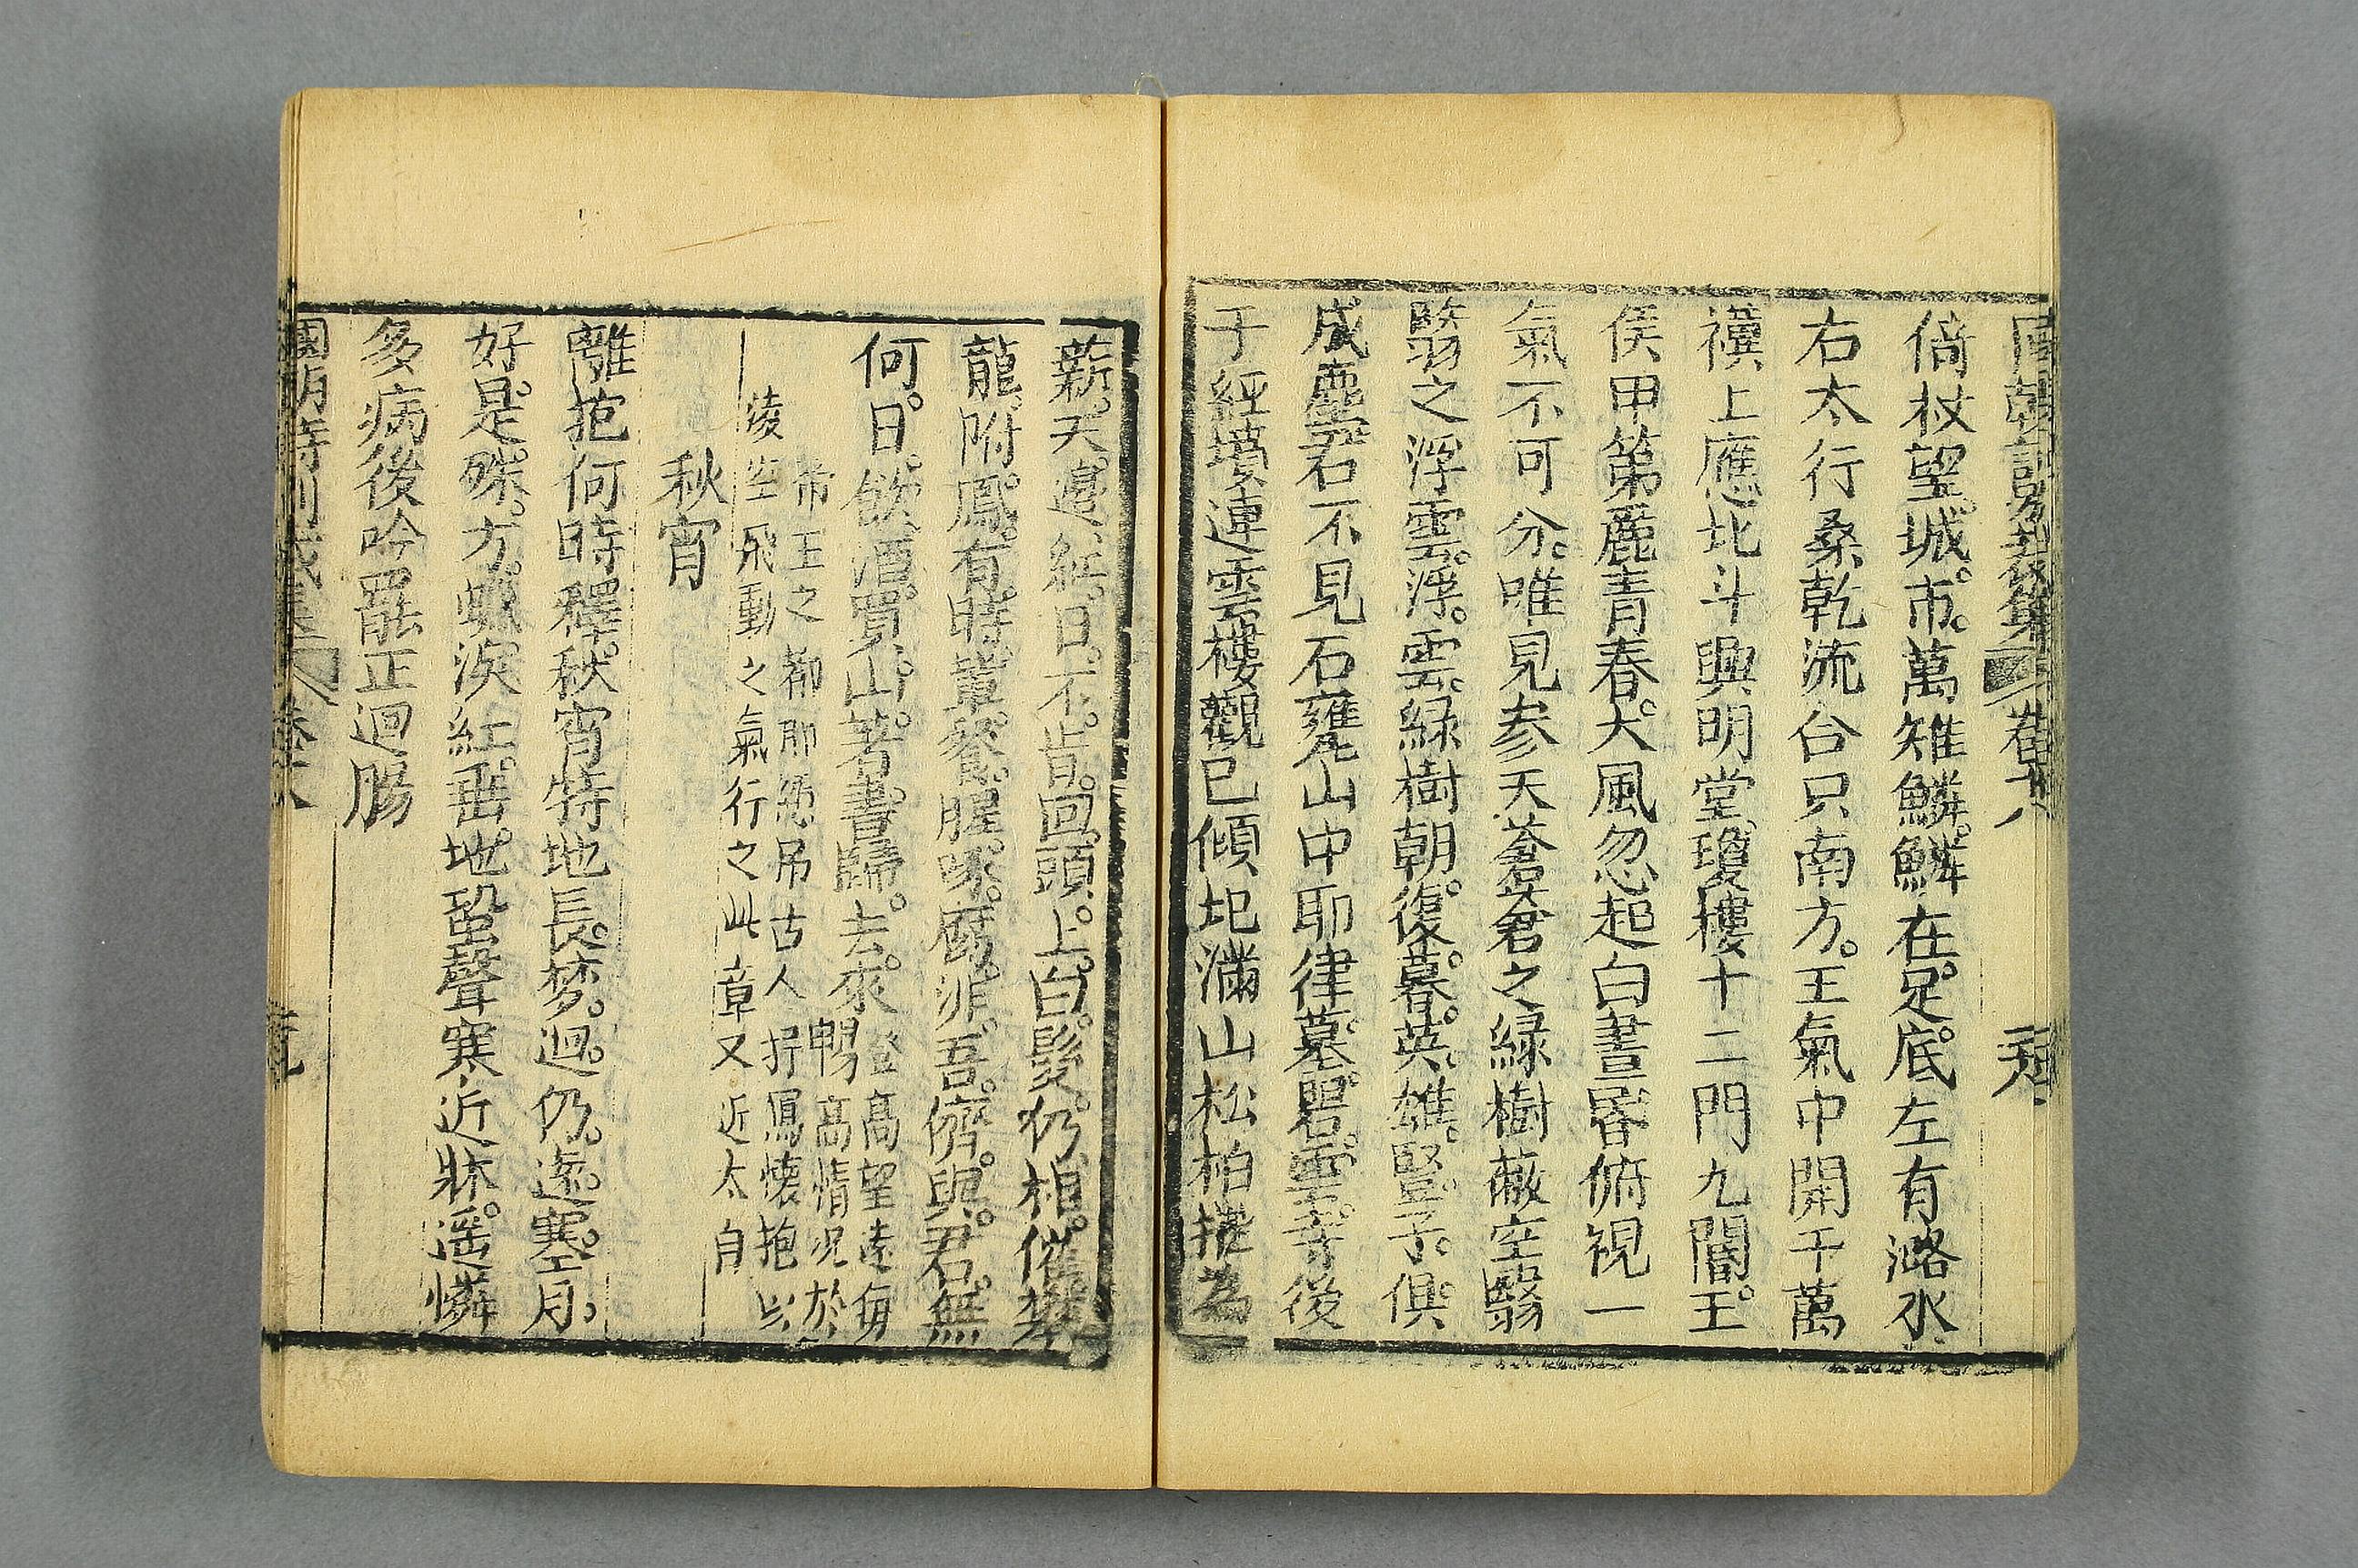 倚杖望城市萬雉鱗鱗在足底左有潞水
右太行桑乾流合只南方王氣中開千萬
禩上應北斗與明堂瓊樓十二門九闇王
侯甲第麗青春大風忽起白晝昏俯視一
氣不可分唯見參天蒼蒼之綠樹蔽空翳
翳之浮雲浮雲綠樹朝復暮英雄豎子俱
成塵君不見石甕山中耶律墓罌雲寺後
于經墳連雲樓觀已傾圯滿山松柏摧為
薪天邊紅日不肯回頭上白髮仍相催攀
龍附鳳有時羣餐腥啄腐非吾儕與君無
何日飲酒買山著書歸去來 登高望遠每暢高情況於
帝王之都耶憑吊古人抒寫懷抱以
凌空飛動之氣行之此章又近太白
秋宵
離抱何時釋秋宵特地長夢迴仍遠塞月
好是殊方蠟淚紅垂地蛩聲寒近牀遥憐
多病後吟罷正迴腸
國朝詩別裁集 卷六